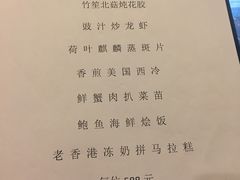 竹笙北菇炖花胶
豉汁炒龙虾
荷叶麒麟蒸斑片
香煎美国西冷
鲜蟹肉扒菜苗
鲍鱼海鲜烩饭
老香港冻奶拼马拉糕
每位688元